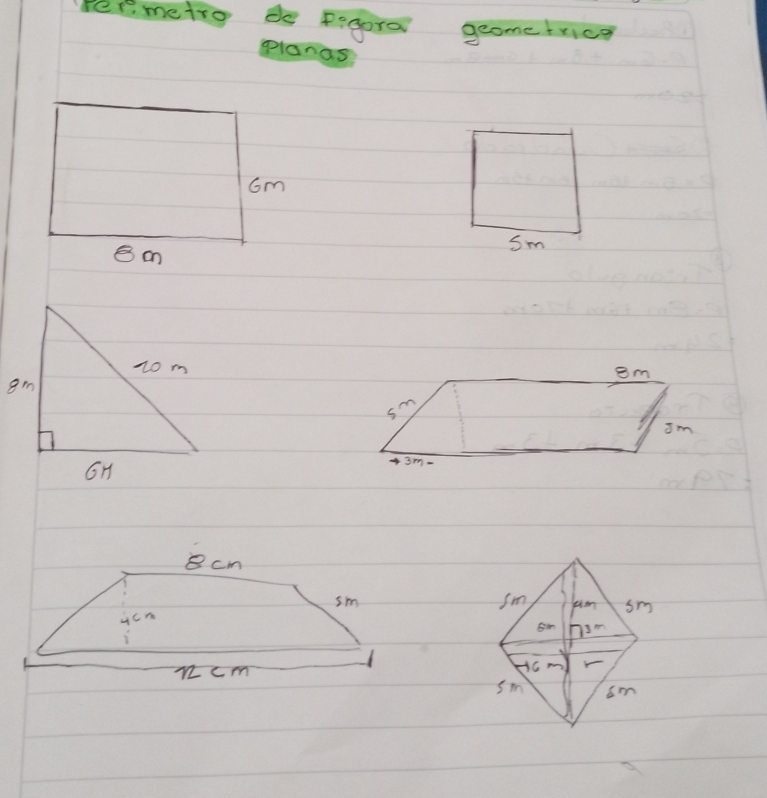 Perimetro de Figura geometrica
Planas
6m
8m
5m
8m
10 m
6M
8m
5m
5m
3m
8 cm
5m
4cm
12 cm
5m
4m
5m
3m
6m
5m